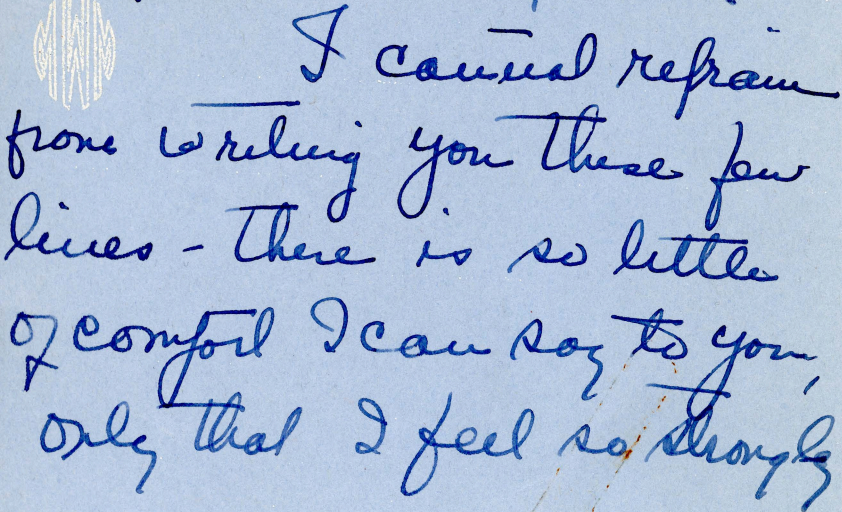 I cannot refrain
from writing you these few
lines - there is so little
of comfort I can say to you,
only that I feel so strongly